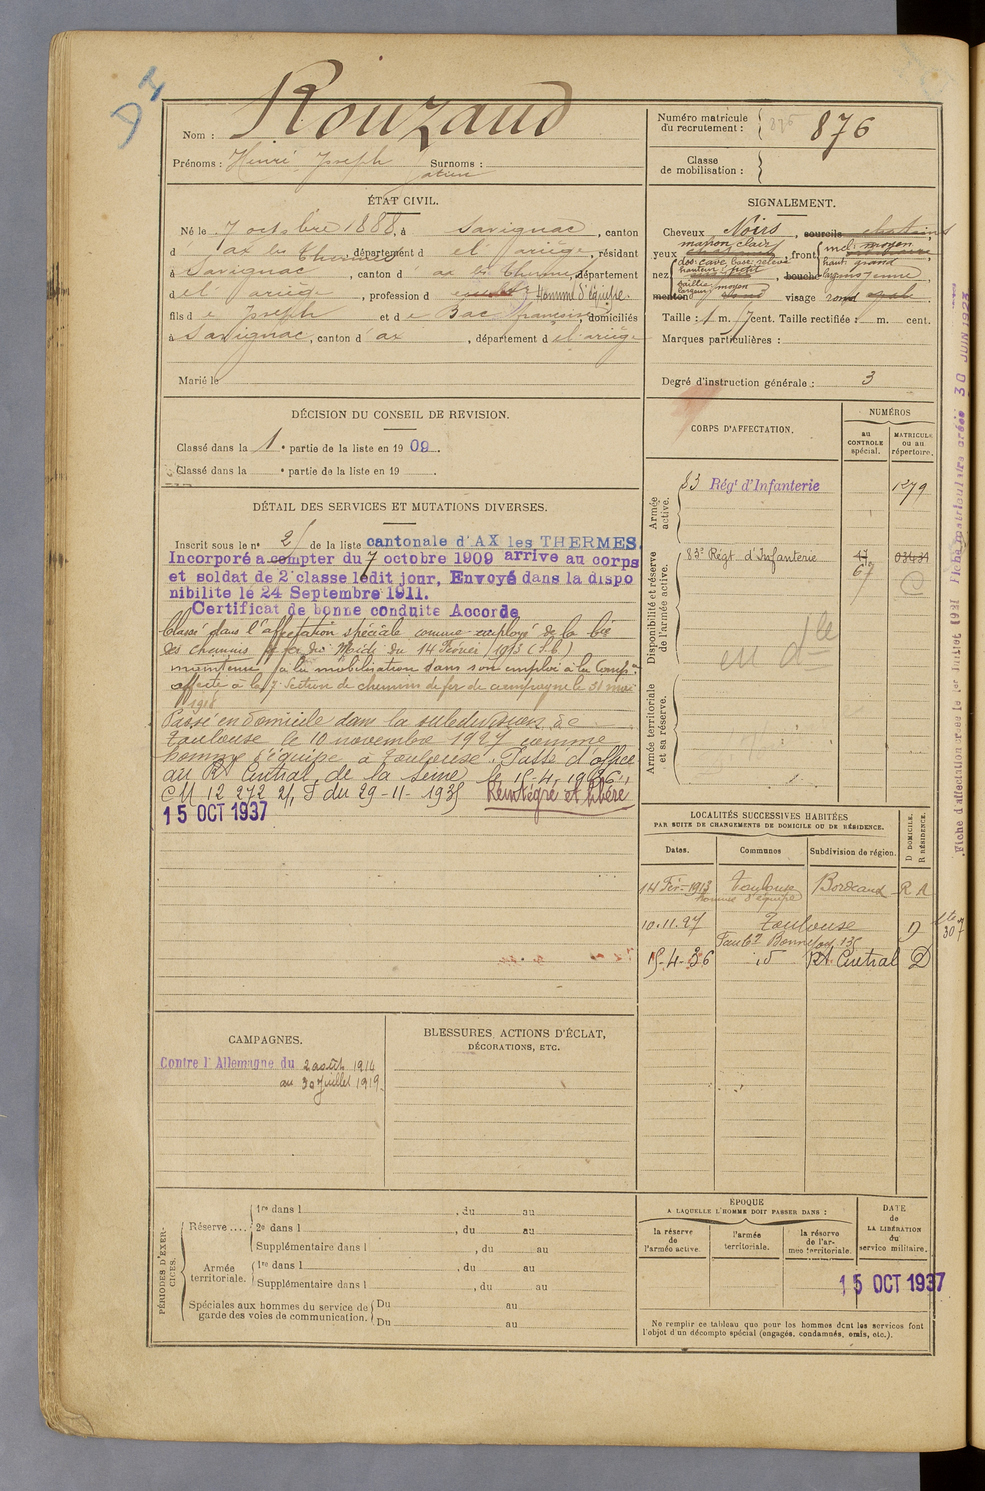 Nom : Rouzaud
Prénoms : Henri Joseph Surnoms :
Numéro matricule du recrutement : 876
Classe de mobilisation :
ÉTAT CIVIL.
Né le 7 octobre 1888, à Savignac, canton
d'ax les Thermes, département d el' ariège, résidant
à Savignac, canton d' ax les Thermes, département
d el' ariège, profession d Homme d'équipe.
fils d e Joseph et d e Bac françoise domiciliés
à Savignac, canton d' ax, département d el'ariège
Marié le
SIGNALEMENT.
Cheveux Noirs, sourcils chatains
yeux marron clair, front incl: moyen
haut: grand
nez dos: cave base: relevé
hauteur: petit, bouche larg: moyenne
saillie moyen
menton rond visage rond
Taille : 1 m. 7 cent. Taille rectifiée : m. cent.
Marques particulières :
Degré d'instruction générale : 3
DÉCISION DU CONSEIL DE REVISION.
Classé dans la 1e partie de la liste en 1909.
Classé dans la e partie de la liste en 19
DÉTAIL DES SERVICES ET MUTATIONS DIVERSES.
Inscrit sous le n° 2 de la liste cantonale d'AX les THERMES.
Incorporé a compter du 7 octobre 1909 arrive au corps
et soldat de 2e classe ledit jour, Envoyé dans la dispo
nibilite le 24 Septembre 1911.
Certificat de bonne conduite Accorde
Classé dans l'affectation spéciale comme employé de la Cie
des chemins de fer du Midi du 14 Février 1913 (S.C.)
maintenu à la mobilisation dans son emploi à la Comp.
affecté à la 7e Section de chemins de fer de campagne le 31 mai
1918
Passé en domicile dans la subdivision de
Toulouse le 10 novembre 1927 comme
homme d'équipe à Toulouse. Passé d'office
au Rt Central de la Seine le 15-4-1936,
CM 12 272 2/1 F du 29-11-1935 Réintégré et libéré
15 OCT 1937
CORPS D'AFFECTATION.
NUMÉROS
au CONTROLE spécial.
MATRICULE ou au répertoire.
Armée active.
83 Régt d'Infanterie 1279
Disponibilité et réserve de l'armée active.
83e Régt d'Infanterie 17 03431
67 C
en dle
Armée territoriale et sa réserve.
LOCALITÉS SUCCESSIVES HABITÉES
PAR SUITE DE CHANGEMENTS DE DOMICILE OU DE RÉSIDENCE.
Dates. Communes Subdivision de région. D DOMICILE. R RÉSIDENCE.
14 Fév. 1913 Toulouse Bordeaux R A
homme d'équipe
10.11.27 Toulouse D
Faubg Bonnefoy 135
15-4-36 id Rt. Central D
CAMPAGNES.
Contre l'Allemagne du 2 août 1914
au 30 Juillet 1919.
BLESSURES, ACTIONS D'ÉCLAT,
DÉCORATIONS, ETC.
PÉRIODES D'EXERCICES.
Réserve .... 1re dans l , du au
2e dans l , du au
Supplémentaire dans l , du au
Armée territoriale. 1re dans l , du au
Supplémentaire dans l , du au
Spéciales aux hommes du service de garde des voies de communication. Du au
Du au
ÉPOQUE
A LAQUELLE L'HOMME DOIT PASSER DANS :
la réserve de l'armée active.
l'armée territoriale.
la réserve de l'armée territoriale.
DATE de LA LIBÉRATION du service militaire.
15 OCT 1937
Ne remplir ce tableau que pour les hommes dont les services font
l'objet d'un décompte spécial (engagés, condamnés, omis, etc.).
Fiche d'affectation créée le 1er Juillet 1931 Fiche matriculaire créée 30 JUIN 1923